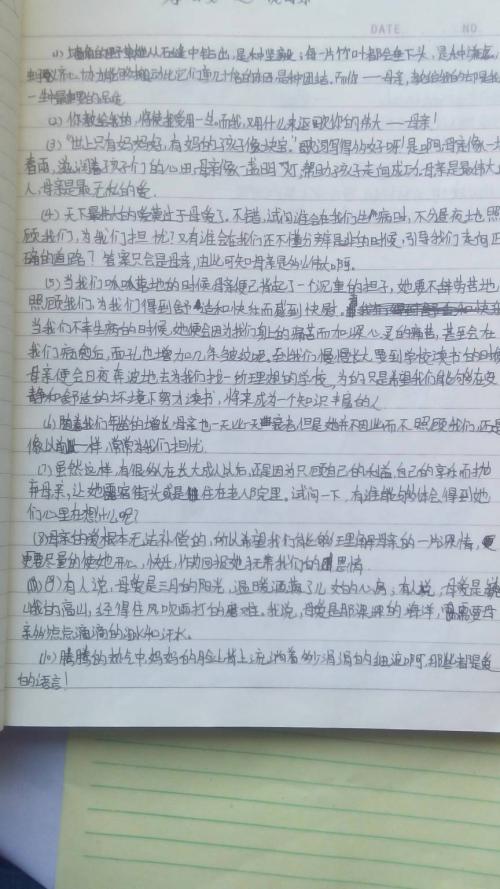 DATE NO
(1) 墙角的野草她从石缝中钻出,是种坚毅;每一片竹叶都会垂下头,是种谦逊,
协力能够搬动比它们重几十倍的东西是种团结。而你——母亲,教给我的却是我
一生中最重要的品德
(2) 你教给我的,将使我受用一生。而我,又用什么来运回你的伟大——母亲!
(3) "世上只有妈妈好,有妈的孩子像块宝。"歌词写得多好呀!是啊,母亲像一
春雨,滋润着孩子们的心田;母亲像一盏明灯,帮助孩子走向成功。母亲是最伟大
人,母亲是最无私的爱.
(4) 天下最伟大的爱莫过于母爱了,不错,试问谁会在我们生病时,不分昼夜地照
顾我们,为我们担忧?又有谁会在我们还不懂分辨是非的时候,引导我们走向正
确的道路?答案只会是母亲,由此可知母亲是多么伟大啊。
(5) 当我们呱呱落地的时候母亲便已背起了一个沉重的担子,她要不辞劳苦地
照顾我们,为我们得到舒适和快乐而感到快慰
当我们不幸生病的时候,她便会因为我们身上的痛苦而加深心灵的痛苦,甚至会在
我们病愈后,面孔也增加几条皱纹呢。到我们慢慢长大,要到学校读书的时候
母亲便会日夜奔波地去为我们找一所理想的学校,为的只是希望我们能够在安
静和舒适的环境下努力读书,将来成为一个知识丰富的人
(6) 随着我们年龄的增长,母亲也一天比一天衰老但是她并不因此而不照顾我们,还是
像以前一样,常常为我们担忧.
(7) 虽然这样,有很多人在长大成人以后,还是因为只顾自己的利益,自己的享乐而抛
弃母亲,让她露宿街头或是住在老人院里。试问一下,有谁能够体会得到她
们心里在想什么呢?
(8) 母亲的爱根本无法补偿的,所以希望我们能够理解母亲的一片深情,
更要尽量的使她开心,快乐,作为回报她抚养我们的恩情.
(9) 有人说,母爱是三月的阳光,温暖洒满了儿女的心房;有人说,母爱是
的高山,经得住风吹雨打的磨难。我说,母爱是那深深的海洋,需要母
亲的点点滴滴的泪水和汗水。
(10) 腾腾的热气中妈妈的脸上背上流淌着多少涓涓的细流啊,那些都是爱
的语言!